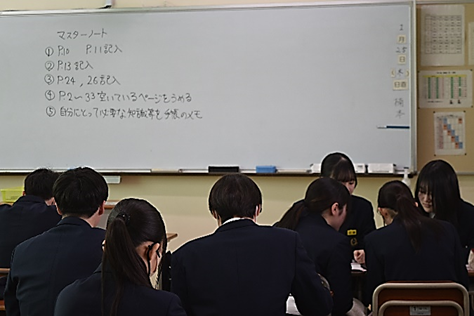 マスターノート
① P.10 P.11記入
② P.13記入
③ P.24, 26記入
④ P.2〜33空いているページをうめる
⑤ 自分にとって必要な知識等を手帳のメモ
2
月
28
日
(木)
日直
橋本